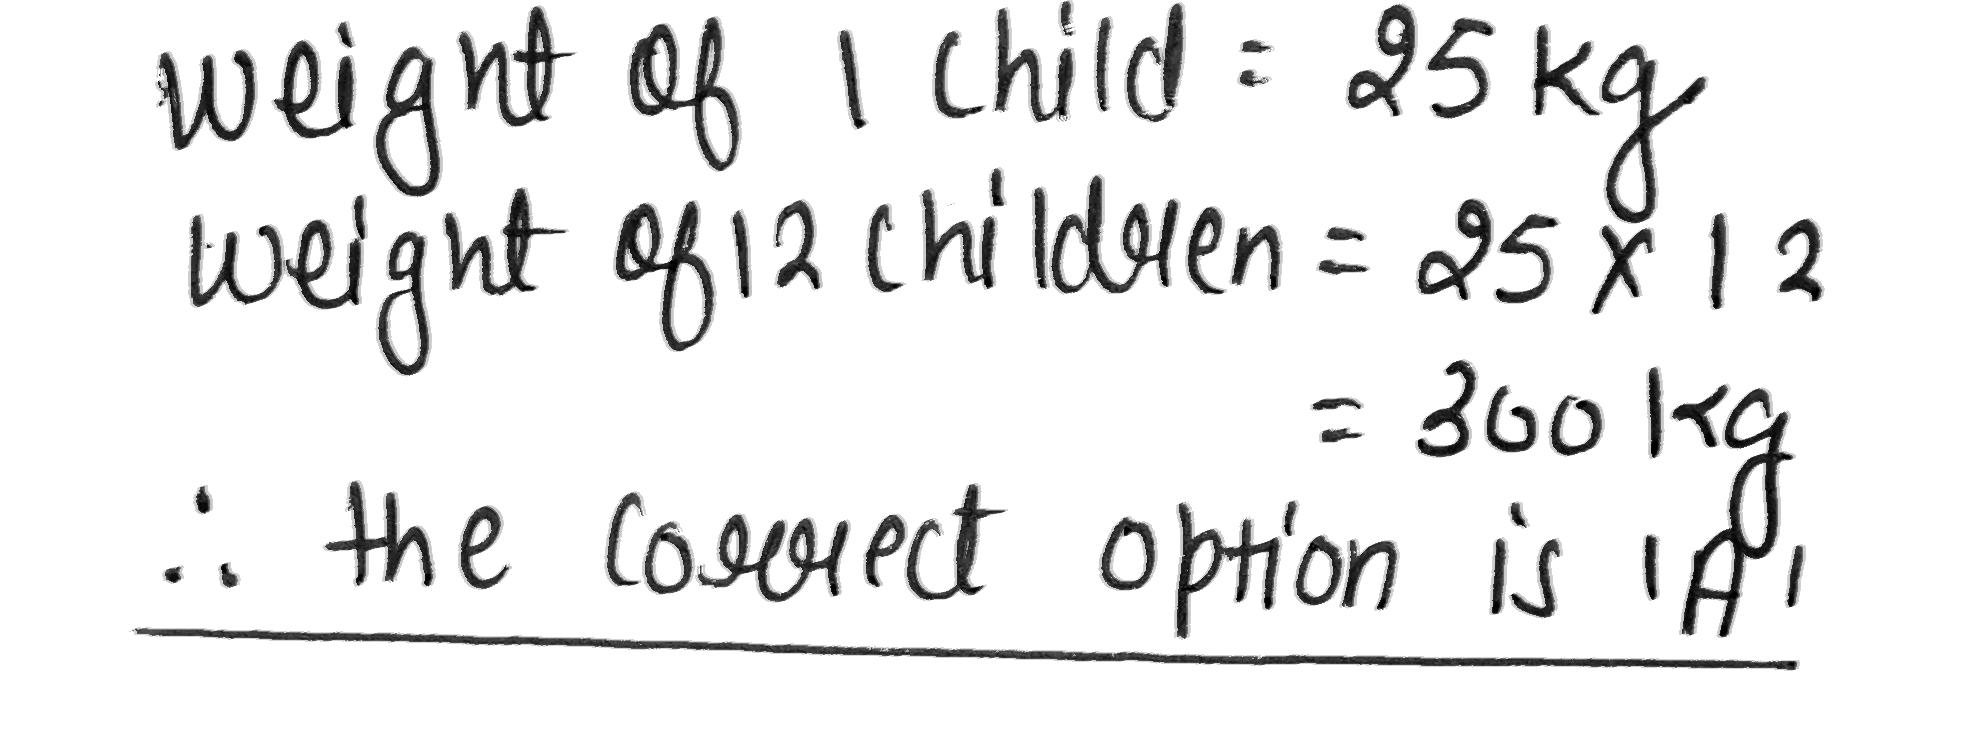 weight of 1 child = 25 kg
weight of 12 children = 25 × 12
= 300 kg
∴ the correct option is 'A'